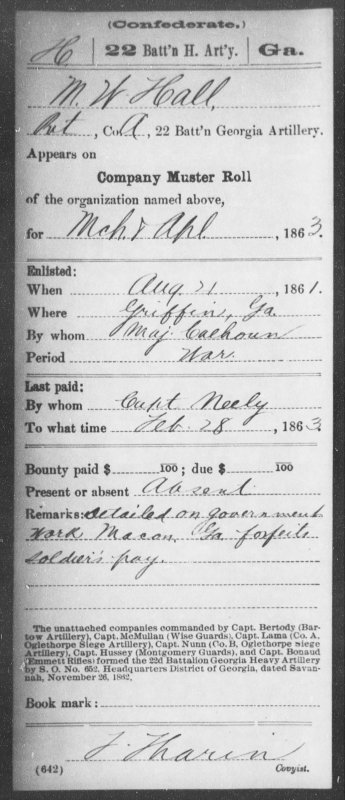 (Confederate.)
H | 22 Batt'n H. Art'y. | Ga.
M. W. Hall,
Pvt, Co. A, 22 Batt'n Georgia Artillery.
Appears on
Company Muster Roll
of the organization named above,
for Mch & Apl, 1863.
Enlisted:
When Aug 21, 1861.
Where Griffin, Ga
By whom Maj. Calhoun
Period War.
Last paid:
By whom Capt Neely
To what time Feb. 28, 1863.
Bounty paid $ 100; due $ 100
Present or absent Absent
Remarks: detailed on government
work Macon, Ga forfeits
soldier's pay.
The unattached companies commanded by Capt. Bertody (Bar-
tow Artillery), Capt. McMullan (Wise Guards), Capt. Lama (Co. A,
Oglethorpe Siege Artillery), Capt. Nunn (Co. B, Oglethorpe Siege
Artillery), Capt. Hussey (Montgomery Guards), and Capt. Bonaud
(Emmett Rifles) formed the 22d Battalion Georgia Heavy Artillery
by S. O. No. 652, Headquarters District of Georgia, dated Savan-
nah, November 26, 1862.
Book mark:
J. Tharin
(642) Copyist.